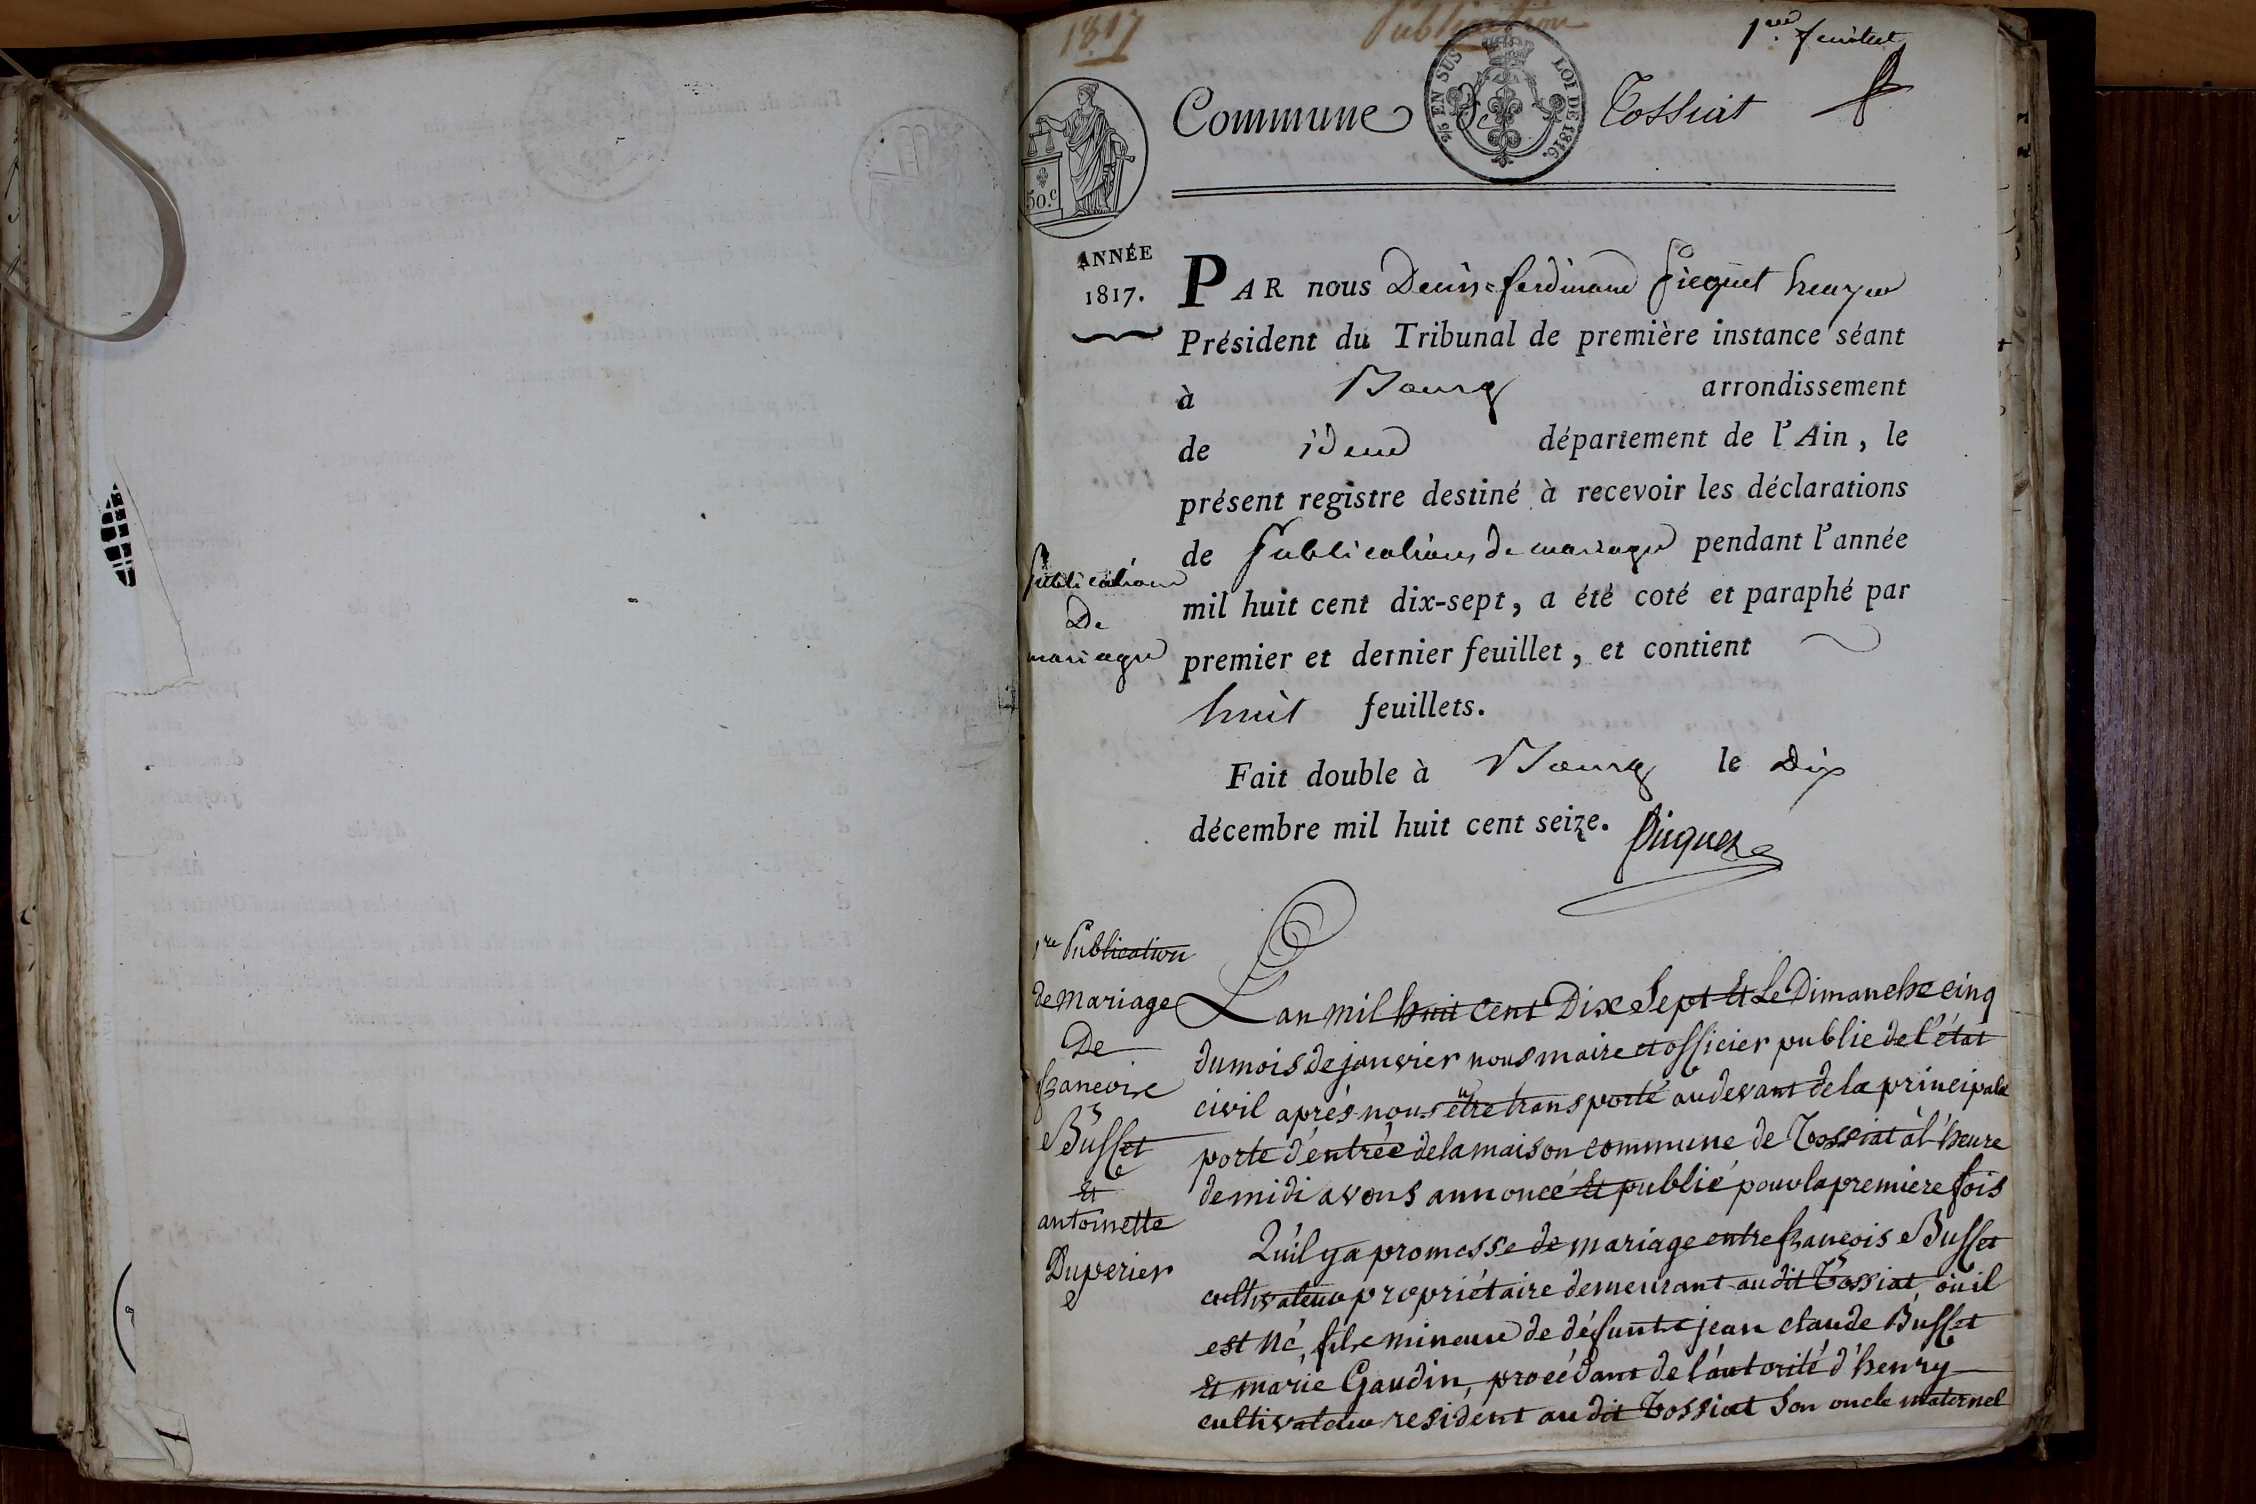 1817 Publication
1re feuillet
25 EN SUS LOI DE 1816.
Commune De Tossiat
50.c
ANNÉE
1817.
PAR nous Denis=ferdinand Picquet
Président du Tribunal de première instance séant
à Bourg arrondissement
de idem département de l'Ain, le
présent registre destiné à recevoir les déclarations
de Publications de mariage pendant l'année
mil huit cent dix-sept, a été coté et paraphé par
premier et dernier feuillet, et contient
huit feuillets.
Publications
De
mariage
Fait double à Bourg le Dix
décembre mil huit cent seize.
Picquet
1re Publication
de Mariage
De
francois
Buffet
Et
antoinette
Duperier
L'an mil huit cent Dix Sept Et Le Dimanche cinq
du mois de janvier nous maire et officier public de l'état
civil après nous être transporté au devant de la principale
porte d'entrée de la maison commune de Tossiat à l'heure
de midi avons annoncé Et publié pour la premiere fois
Qu'il y a promesse de mariage entre françois Buffet
cultivateur propriétaire demeurant au dit Tossiat, où il
est Né, fils mineur de défunts jean claude Buffet
Et marie Gaudin, procédant de l'autorité d'henry
cultivateur resident au dit Tossiat Son oncle maternel